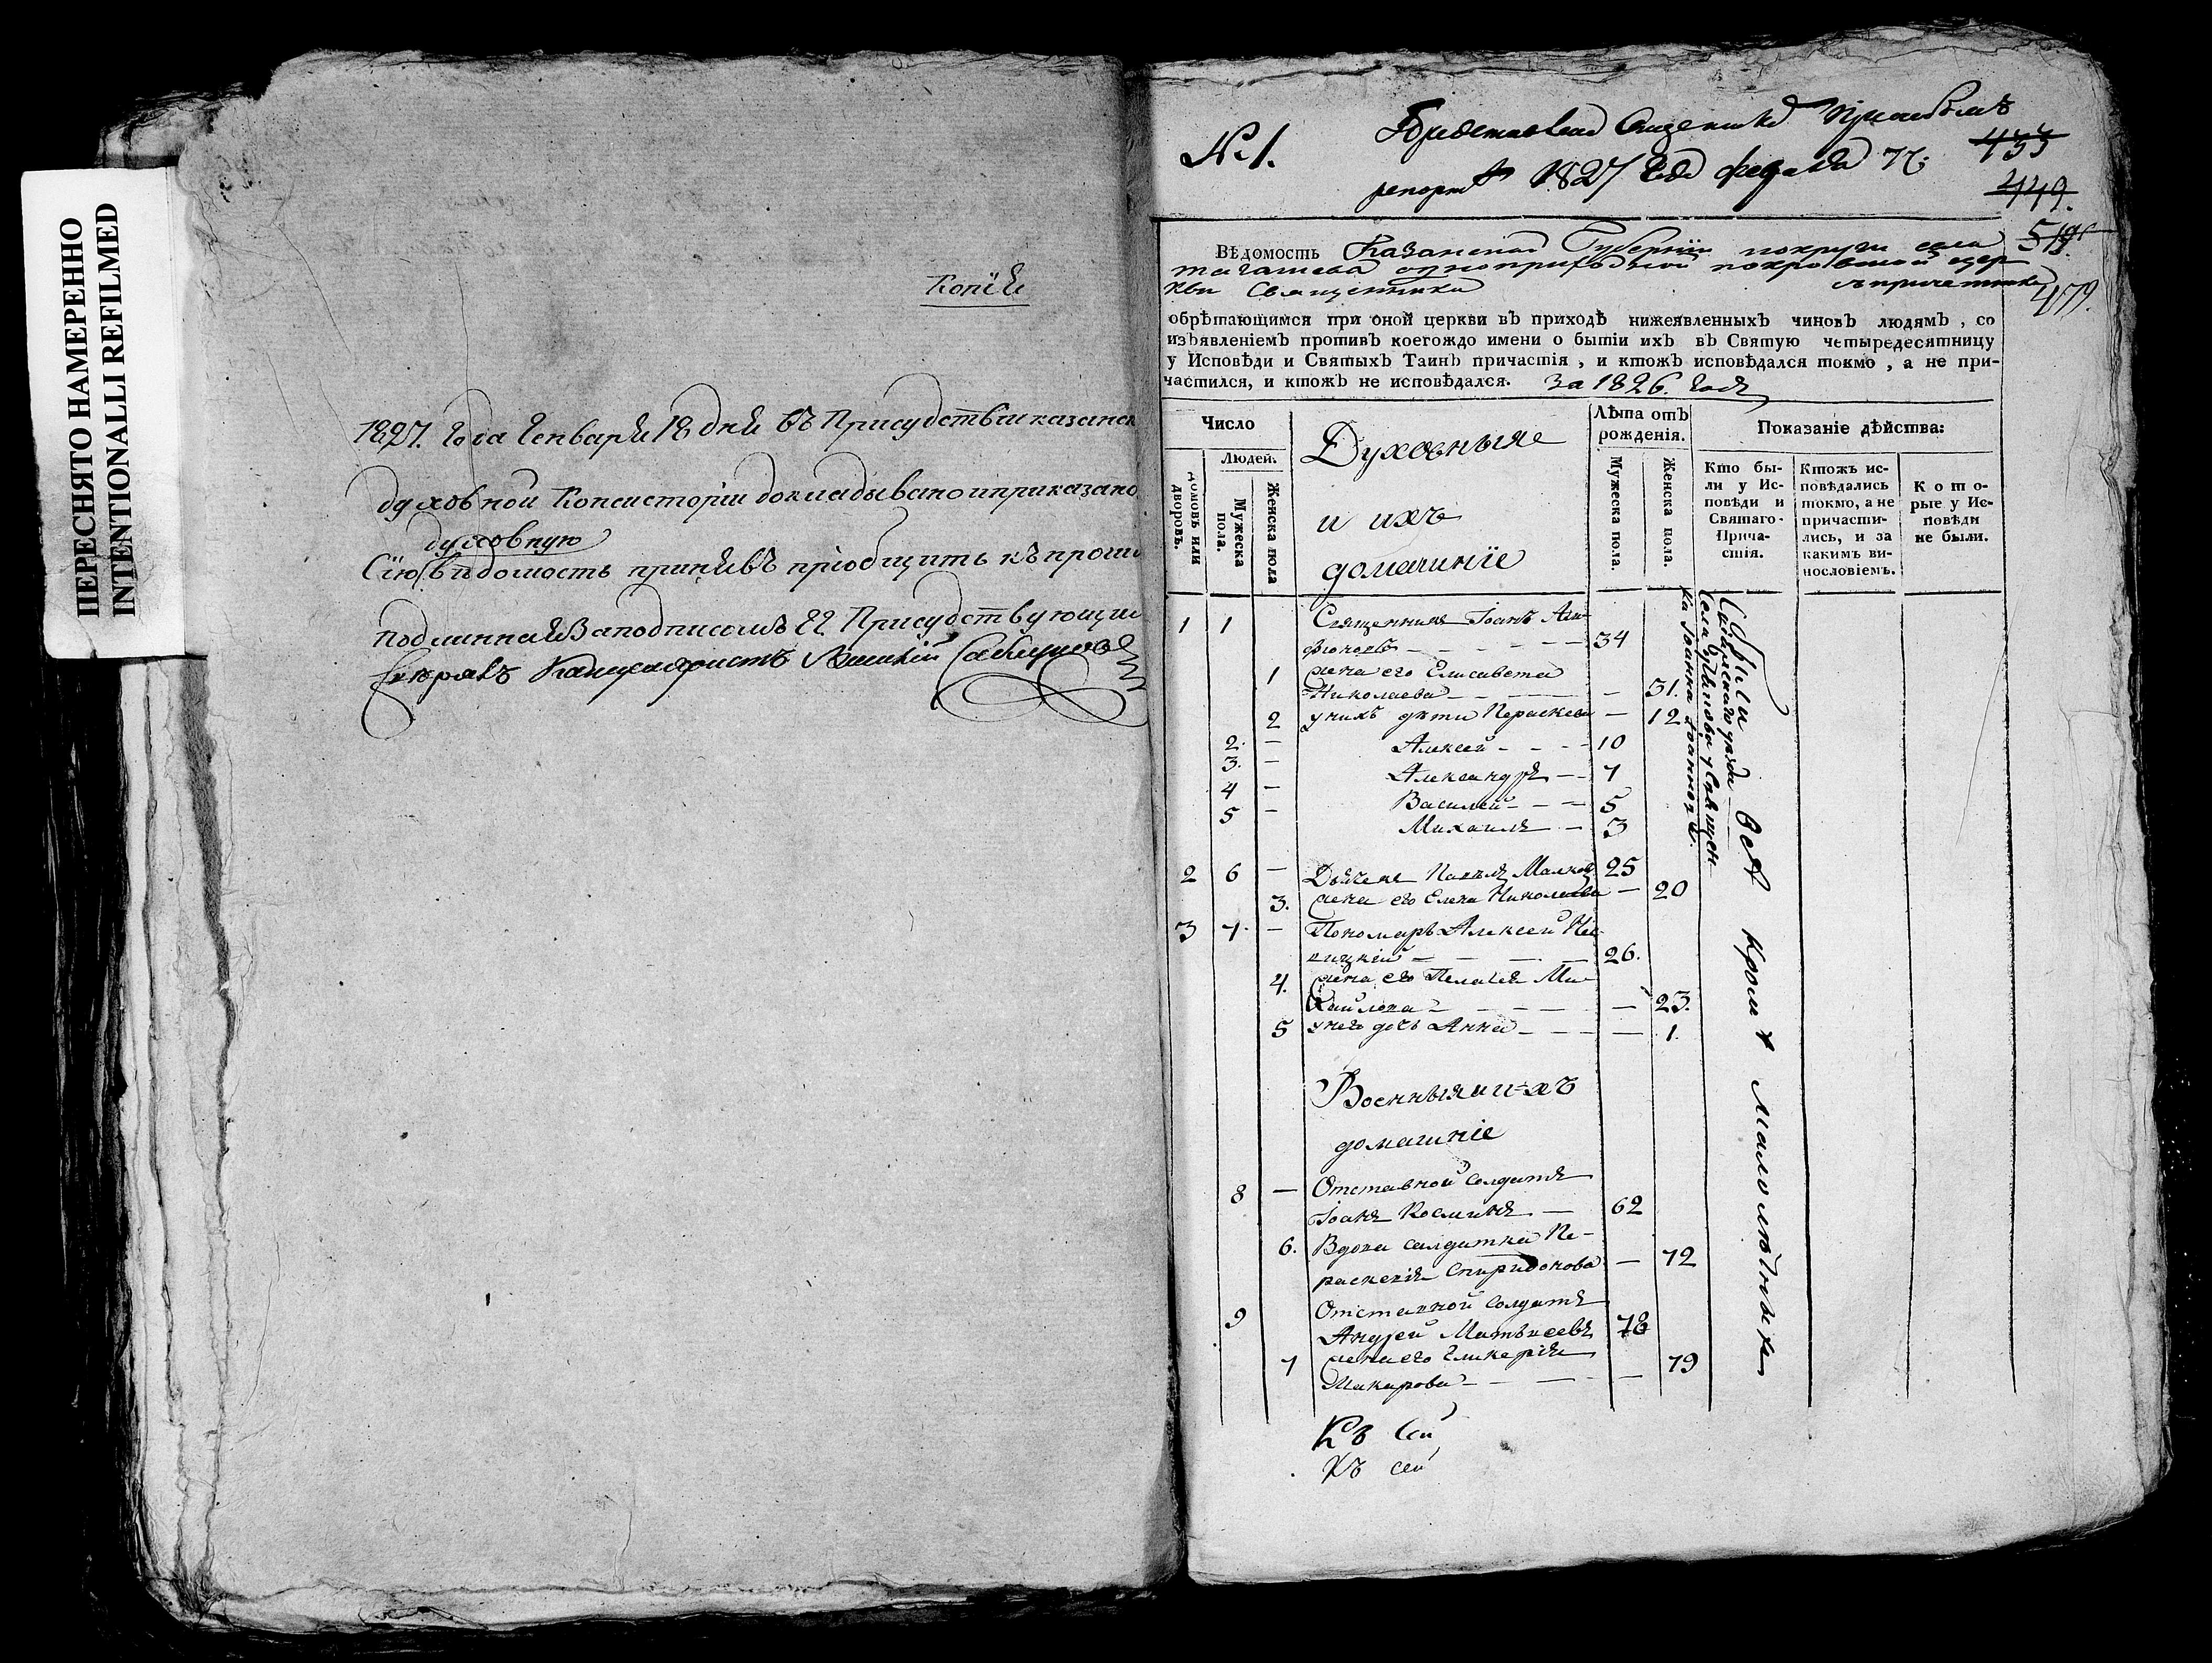 ПЕРЕСНЯТО НАМЕРЕННО
INTENTIONALLI REFILMED
Копія
1827. Года Генваря 18 дня въ Присудствіи казанск
духовной Консисторіи докладывано и приказано
духовную
Сію вѣдомость принявъ пріобщить къ прочи
подлинная за подписомъ гг Присудствующи
Скрѣпъ Канцеляристъ
№ 1.
Представлена Священника при
репортѣ 1827 Года февраля 7го
455
449.
519
479.
Вѣдомость Казанской Губерніи округи села
тагашева одноприходной покровской цер
кви Священника съ причетники
обрѣтающимся при оной церкви въ приходѣ нижеявленныхъ чиновъ людямъ , со
изъявленіемъ противъ коегождо имени о бытіи ихъ въ Святую четыредесятницу
у Исповѣди и Святыхъ Таинъ причастія , и ктожъ исповѣдался токмо , а не при-
частился, и ктожъ не исповѣдался. За 1826. Годъ
Число
Людей.
домовъ или дворовъ.
Мужеска пола.
Женска пола
Духовныя
и ихъ
домашніе
Лѣта отъ
рожденія.
Мужеска пола.
Женска пола.
Показаніе дѣйства:
Кто бы-
ли у Ис-
повѣди и
Святаго
Прича-
стія.
Ктожъ ис-
повѣдались
токмо, а не
причасти-
лись, и за
какимъ ви-
нословіемъ.
Кото-
рые у Ис-
повѣди
не были.
1 1 Священникъ Іоанъ
34
1 жена его Елисавета
Николаева 31.
2 у нихъ дѣти Пераскева 12
2. Алексей 10
3. Александръ 7
4 Василей 5
5 Михаилъ 3
2 6 Дьячекъ Павелъ 25
3. жена его Елена Николаева 20
3 7. Пономарь Алексей
26.
4. жена его Пелагея Ми
хайлова 23.
5 у него дочь Анна 1.
Были
уезда
села у Священ
ка Іоанна
всѣ кромѣ малолѣтныхъ
Военныя и ихъ
домашніе
8 Отставной солдатъ
Іоанъ Косминъ 62
6. Вдова салдатка Пе-
раскевія Спиридонова 72
9 Отставной солдатъ
Андрей Матвѣевъ 78
7 жена его Гликерія
Макарова 79
Къ сей
Къ сей